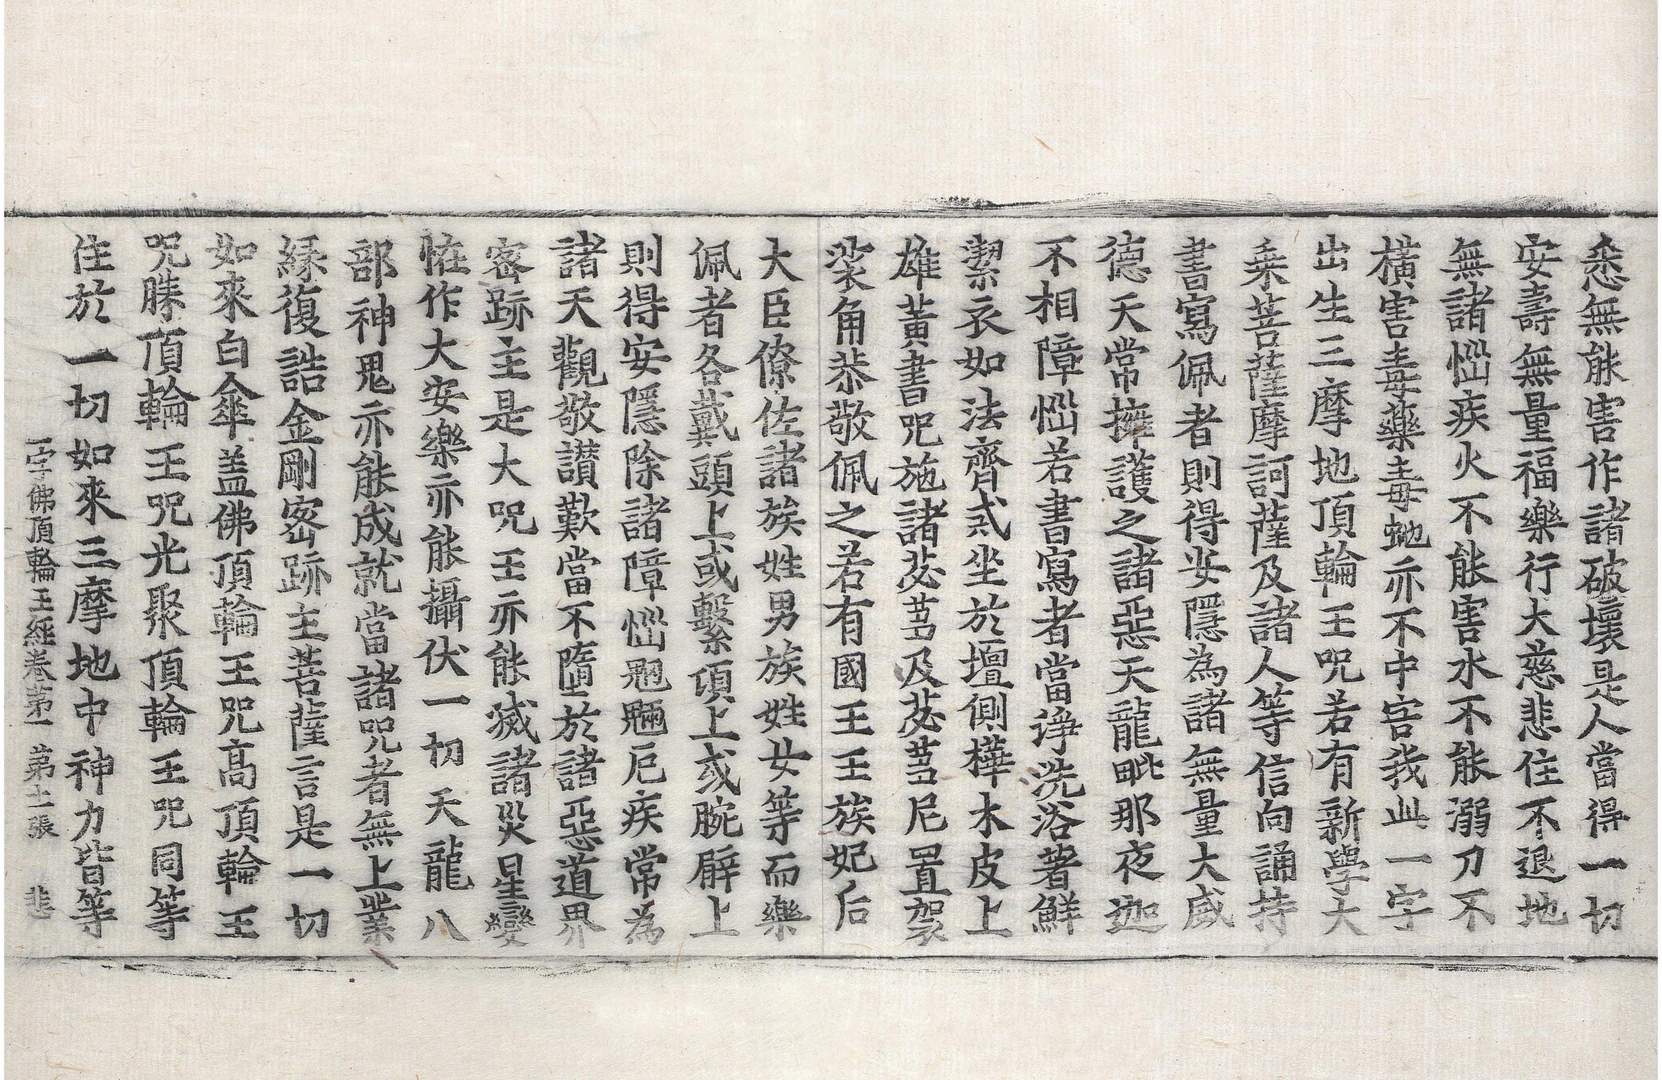 悉無能害作諸破壞是人當得一切
安壽無量福樂行大慈悲住不退地
無諸惱疾火不能害水不能溺刀不
橫害毒藥毒虵亦不中害我此一字
出生三摩地頂輪王呪若有新學大
乗菩薩摩訶薩及諸人等信向誦持
書寫佩者則得安隱為諸無量大威
德天常擁護之諸惡天龍毗那夜迦
不相障惱若書寫者當淨洗浴著鮮
潔衣如法齊戒坐於壇側樺木皮上
雄黃書呪施諸苾芻及苾芻尼置袈
裟角恭敬佩之若有國王王族妃后
大臣僚佐諸族姓男族姓女等而樂
佩者各戴頭上或繫項上或腕臂上
則得安隱除諸障惱魍魎厄疾常為
諸天觀敬讃歎當不墮於諸惡道界
密跡主是大呪王亦能滅諸災星變
恠作大安樂亦能攝伏一切天龍八
部神鬼亦能成就當諸呪者無上業
緣復誥金剛密跡主菩薩言是一切
如來白傘盖佛頂輪王呪高頂輪王
呪勝頂輪王呪光聚頂輪王呪同等
住於一切如來三摩地中神力皆等
一字佛頂輪王經卷苐一 苐十二張 悲